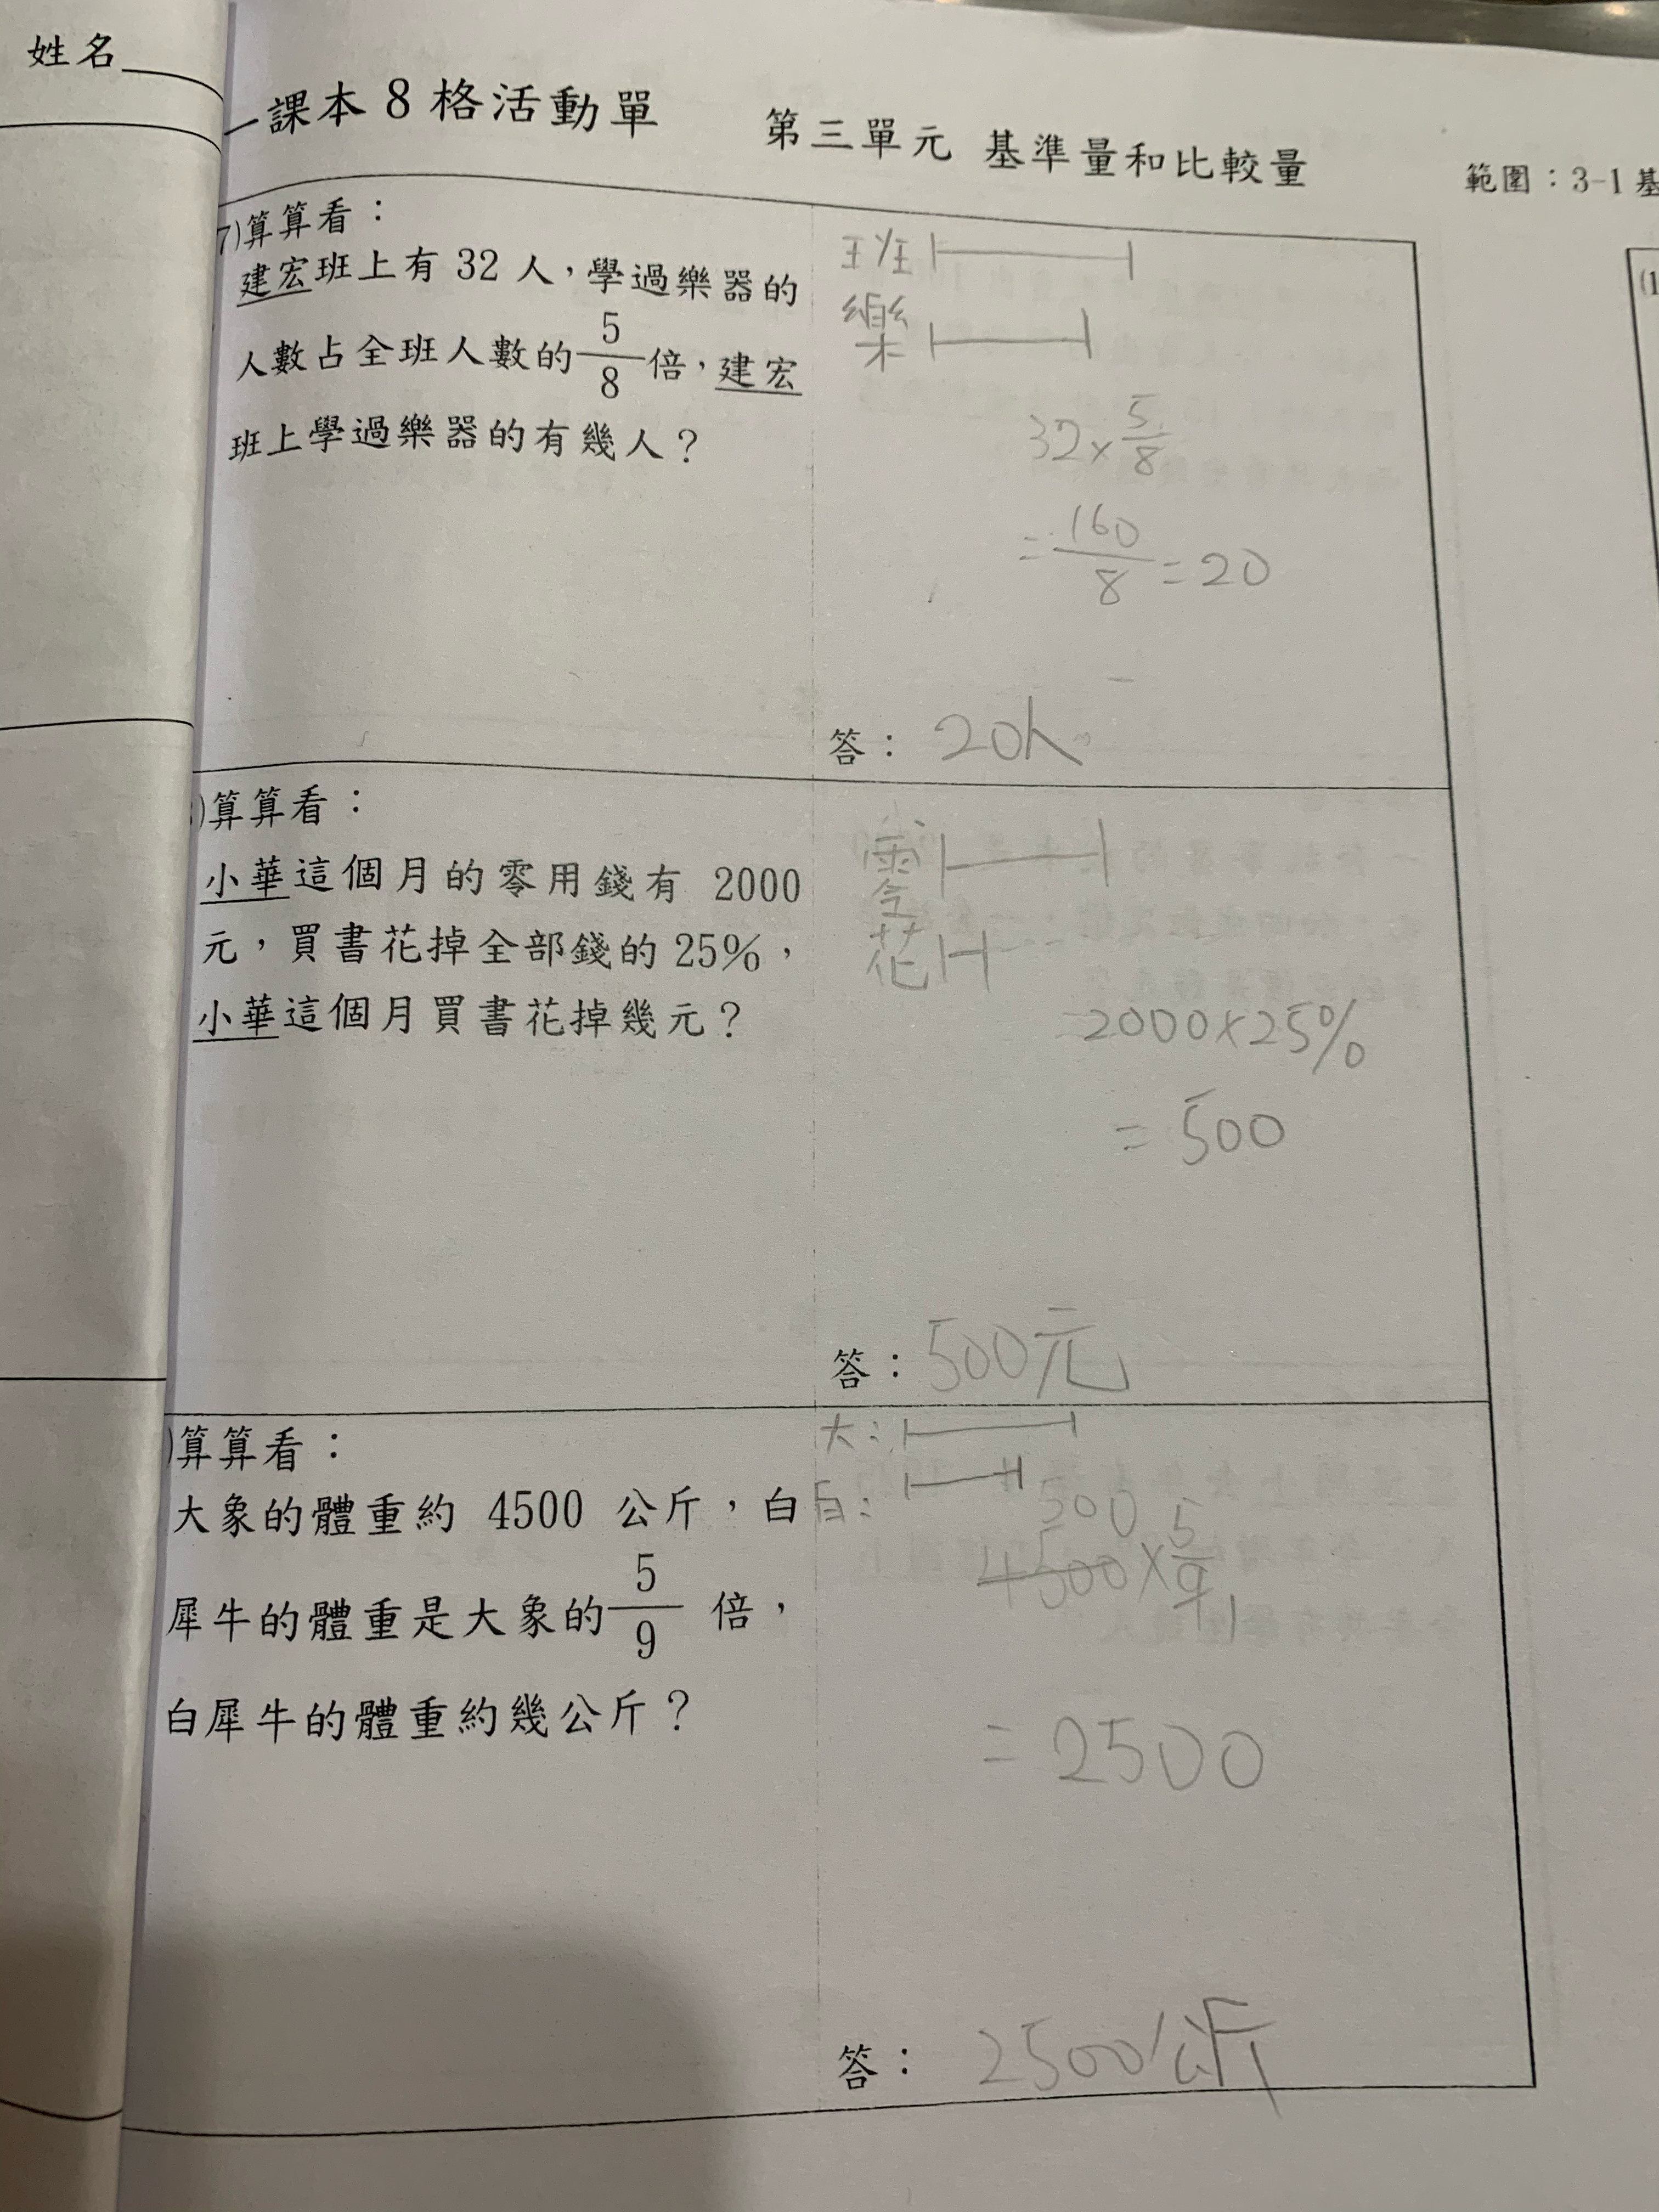 姓名
課本8格活動單 第三單元 基準量和比較量
範圍：3-1基
7)算算看：
建宏班上有32人，學過樂器的
人數占全班人數的5/8倍，建宏
班上學過樂器的有幾人？
班
樂
32×5/8
=160/8=20
答：20人
)算算看：
小華這個月的零用錢有 2000
元，買書花掉全部錢的25%，
小華這個月買書花掉幾元？
零
花
2000×25%
=500
答：500元
)算算看：
大象的體重約 4500 公斤，白
犀牛的體重是大象的5/9 倍，
白犀牛的體重約幾公斤？
大：
白：
500
4500×5/9
1
=2500
答：2500公斤
(1